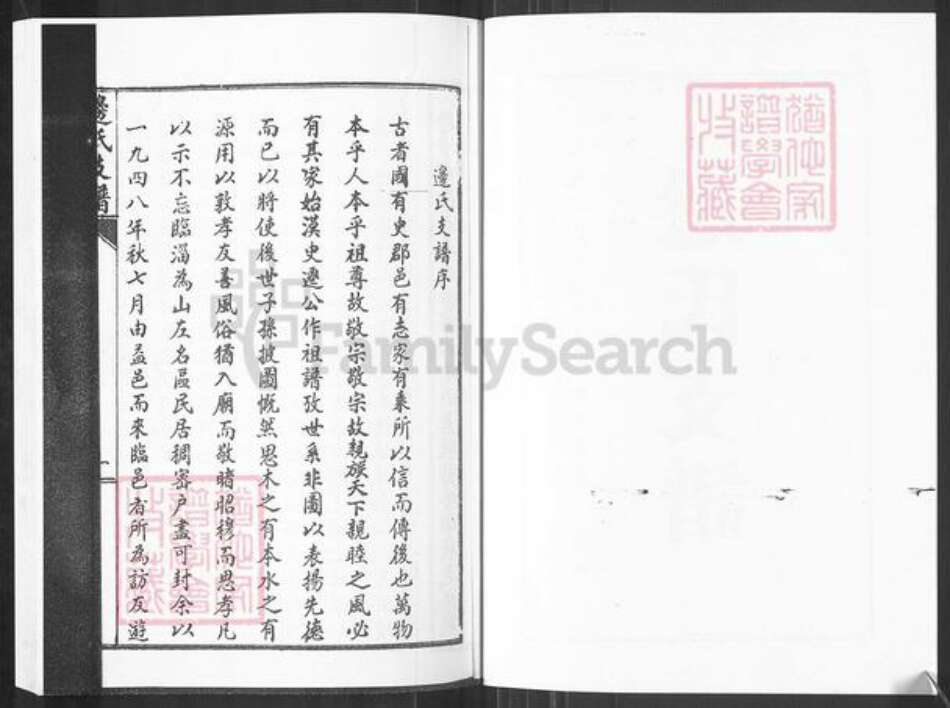 猶他家
譜學會
收藏
邊氏支譜序
古者國有史郡邑有志家有乘所以信而傳後也萬物
本乎人本乎祖尊故敬宗敬宗故親族天下親睦之風必
有其家始漢史遷公作祖譜攷世系非圖以表揚先德
而已以將使後世子孫披圖慨然思木之有本水之有
源用以敦孝友善風俗猶入廟而敬睹昭穆而思孝凡
以示不忘臨淄為山左名區民居稠密戶盡可封余以
一九四八年秋七月由益邑而來臨邑者所為訪友遊
邊氏支譜
一
猶他家
譜學會
收藏
FamilySearch